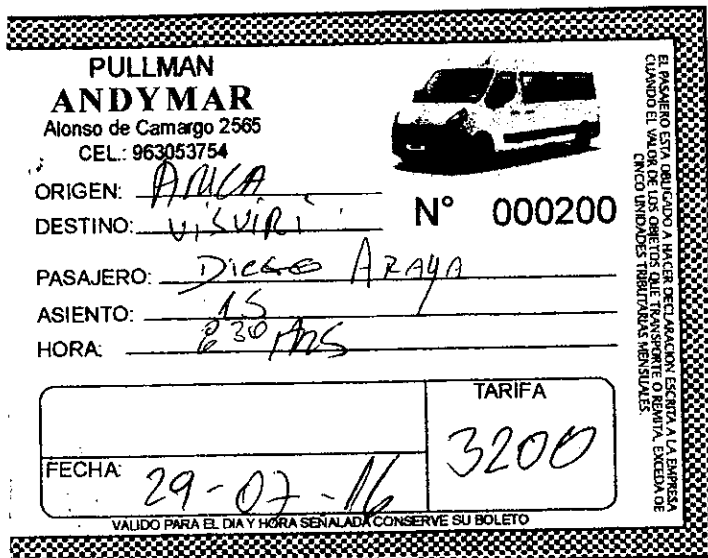 PULLMAN
ANDYMAR
Alonso de Camargo 2565
CEL.: 963053754
ORIGEN: ARICA
DESTINO: VISVIRI
N° 000200
PASAJERO: Diego Araya
ASIENTO: 15
HORA: 8 30 Hrs
TARIFA
3200
FECHA: 29-07-16
VALIDO PARA EL DIA Y HORA SEÑALADA CONSERVE SU BOLETO
EL PASAJERO ESTA OBLIGADO A HACER DECLARACION ESCRITA A LA EMPRESA
CUANDO EL VALOR DE LOS OBJETOS QUE TRANSPORTE O REMITA, EXCEDA DE
CINCO UNIDADES TRIBUTARIAS MENSUALES.